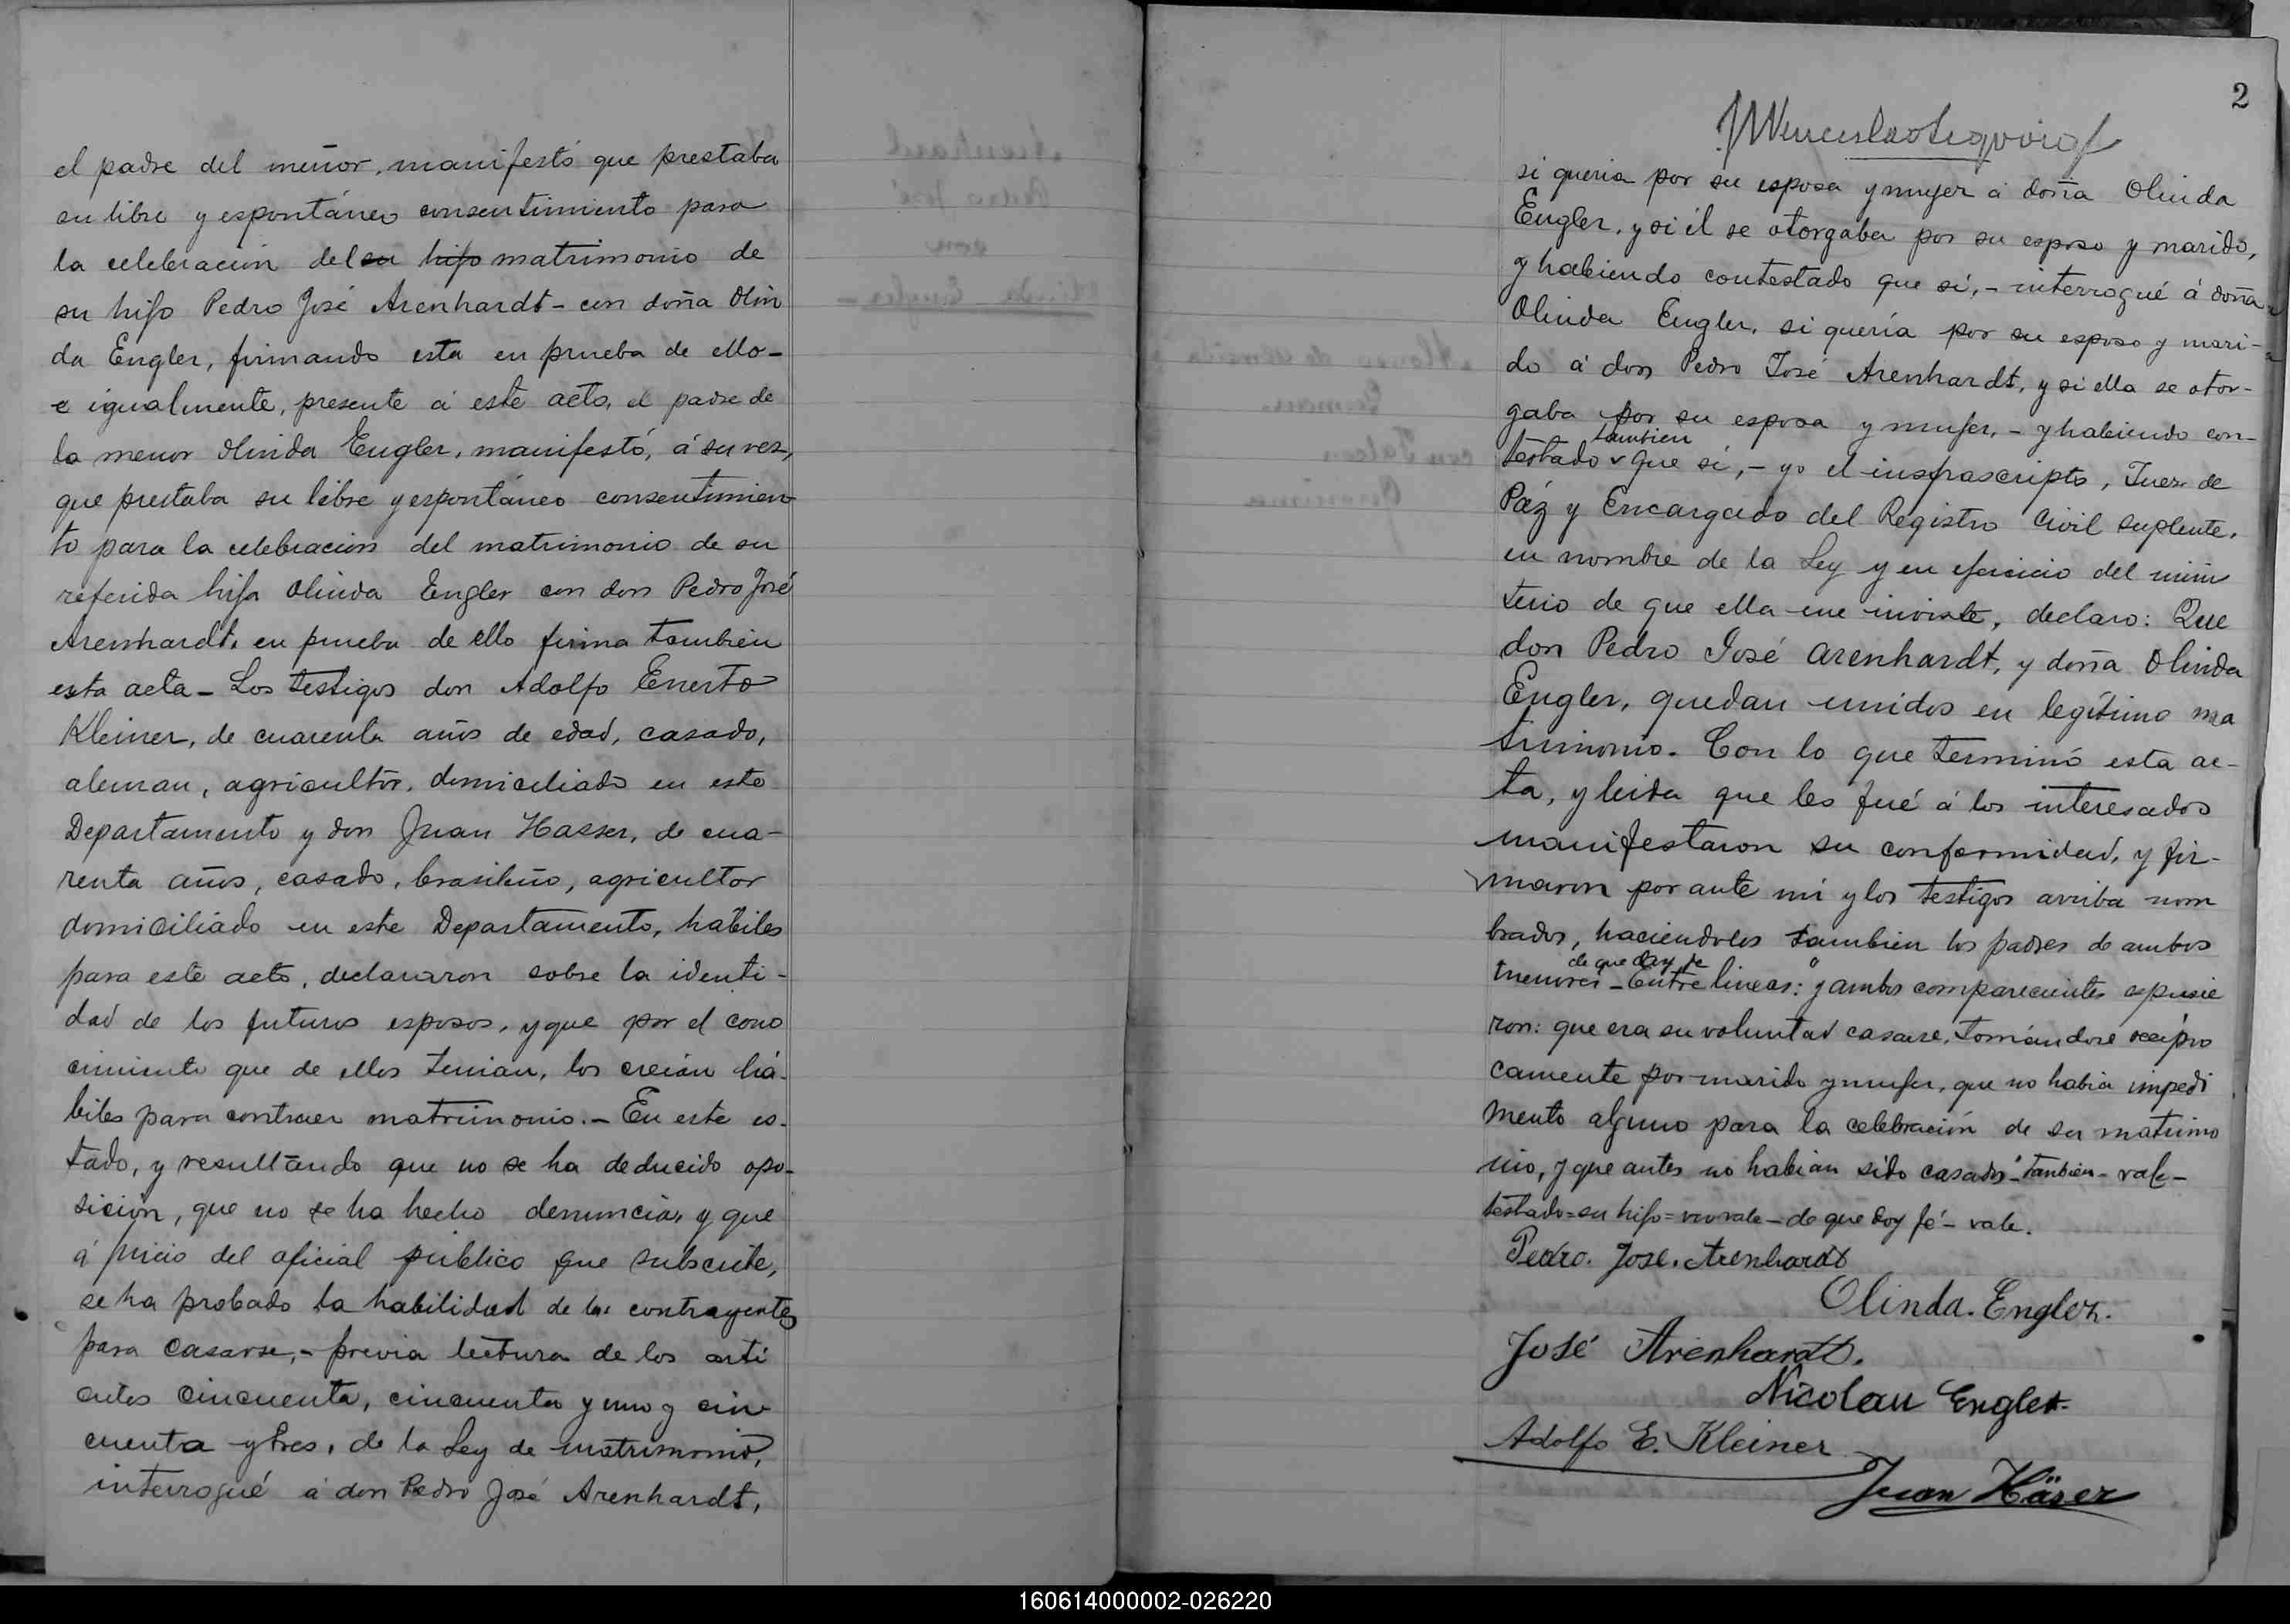 el padre del menor, manifestó que prestaba
su libre y espontáneo consentimiento para
la celebración del su hijo matrimonio de
su hijo Pedro José Arenhardt - con doña Olin
da Engler, firmando esta en prueba de ello -
e igualmente, presente á este acto, el padre de
la menor Olinda Engler, manifestó, á su vez,
que prestaba su libre y espontáneo consentimien
to para la celebración del matrimonio de su
referida hija Olinda Engler con don Pedro José
Arenhardt, en prueba de ello firma también
esta acta - Los testigos don Adolfo Enerto
Kleiner, de cuarenta años de edad, casado,
aleman, agricultor, domiciliado en este
Departamento y don Juan Hasser, de cua-
renta años, casado, brasileño, agricultor
domiciliado en este Departamento, hábiles
para este acto, declararon sobre la identi-
dad de los futuros esposos, y que por el cono
cimiento que de ellos tenian, los creian há-
biles para contraer matrimonio. - En este es-
tado, y resultando que no se ha deducido opo-
sición, que no se ha hecho denuncia, y que
á juicio del oficial público que subscribe,
se ha probado la habilidad de los contrayentes
para casarse, - previa lectura de los arti
culos cincuenta, cincuenta y uno y cin
cuenta y tres, de la Ley de matrimonio,
interrogué á don Pedro José Arenhardt,
2
si queria por su esposa y mujer á doña Olinda
Engler, y si él se otorgaba por su esposo y marido,
y habiendo contestado que sí, - interrogué á doña
Olinda Engler, si quería por su esposo y mari-
do á don Pedro José Arenhardt, y si ella se otor-
gaba por su esposa y mujer, - y habiendo con-
también
testado que sí, - yo el insfrascripto, Juez de
Páz y Encargado del Registro Civil suplente,
en nombre de la Ley y en ejercicio del minis
terio de que ella me inviste, declaro: Que
don Pedro José Arenhardt, y doña Olinda
Engler, quedan unidos en legítimo ma
trimonio. Con lo que terminó esta ac-
ta, y leida que les fué á los interesados
manifestaron su conformidad, y fir-
maron por ante mi y los testigos arriba nom
brados, haciendolos también los padres de ambos
de que doy fe
menores - Entre lineas: "y ambos comparecientes espusie
ron: que era su voluntad casarse, tomándose recípro
camente por marido y mujer, que no habia impedi
mento alguno para la celebración de su matrimo
nio, y que antes no habian sido casados" - también - vale -
testado = su hijo = no vale - de que doy fé - vale.
Pedro. José. Arenhardt
Olinda. Engler.
José Arenhardt.
Nicolau Engler.
Adolfo E. Kleiner
Juan Häser
160614000002-026220